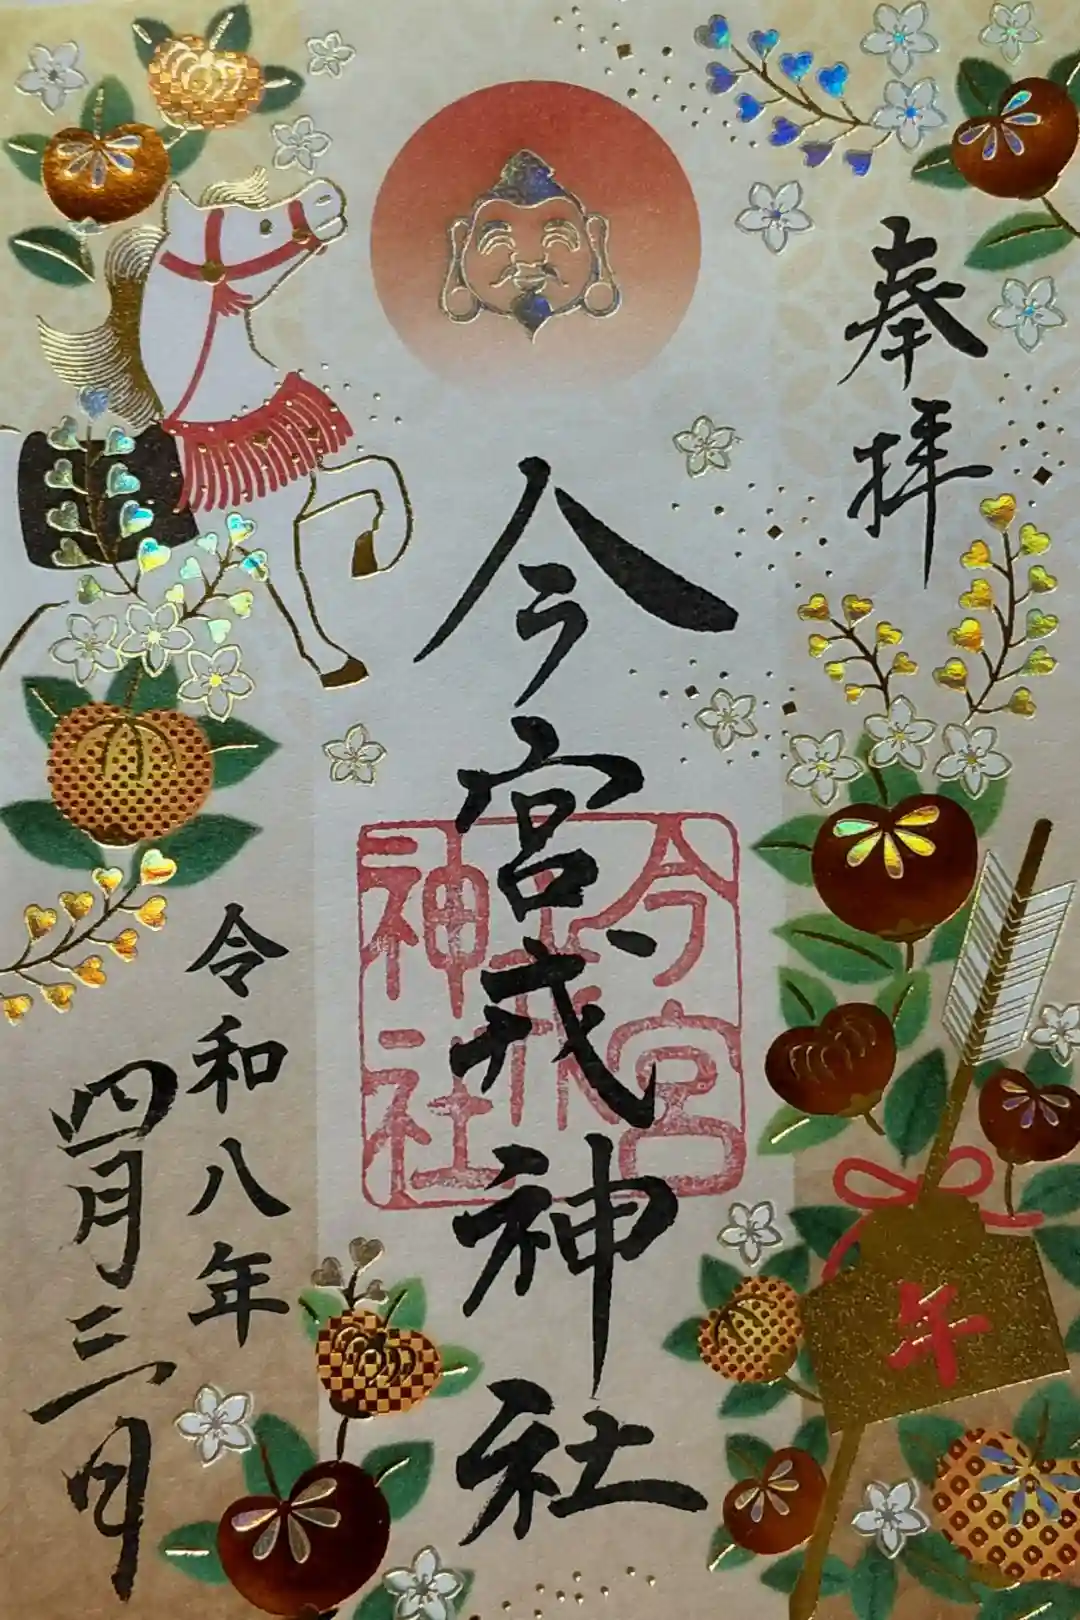 奉拝
今宮戎神社
今宮
戎
神社
令和八年
四月三日
午